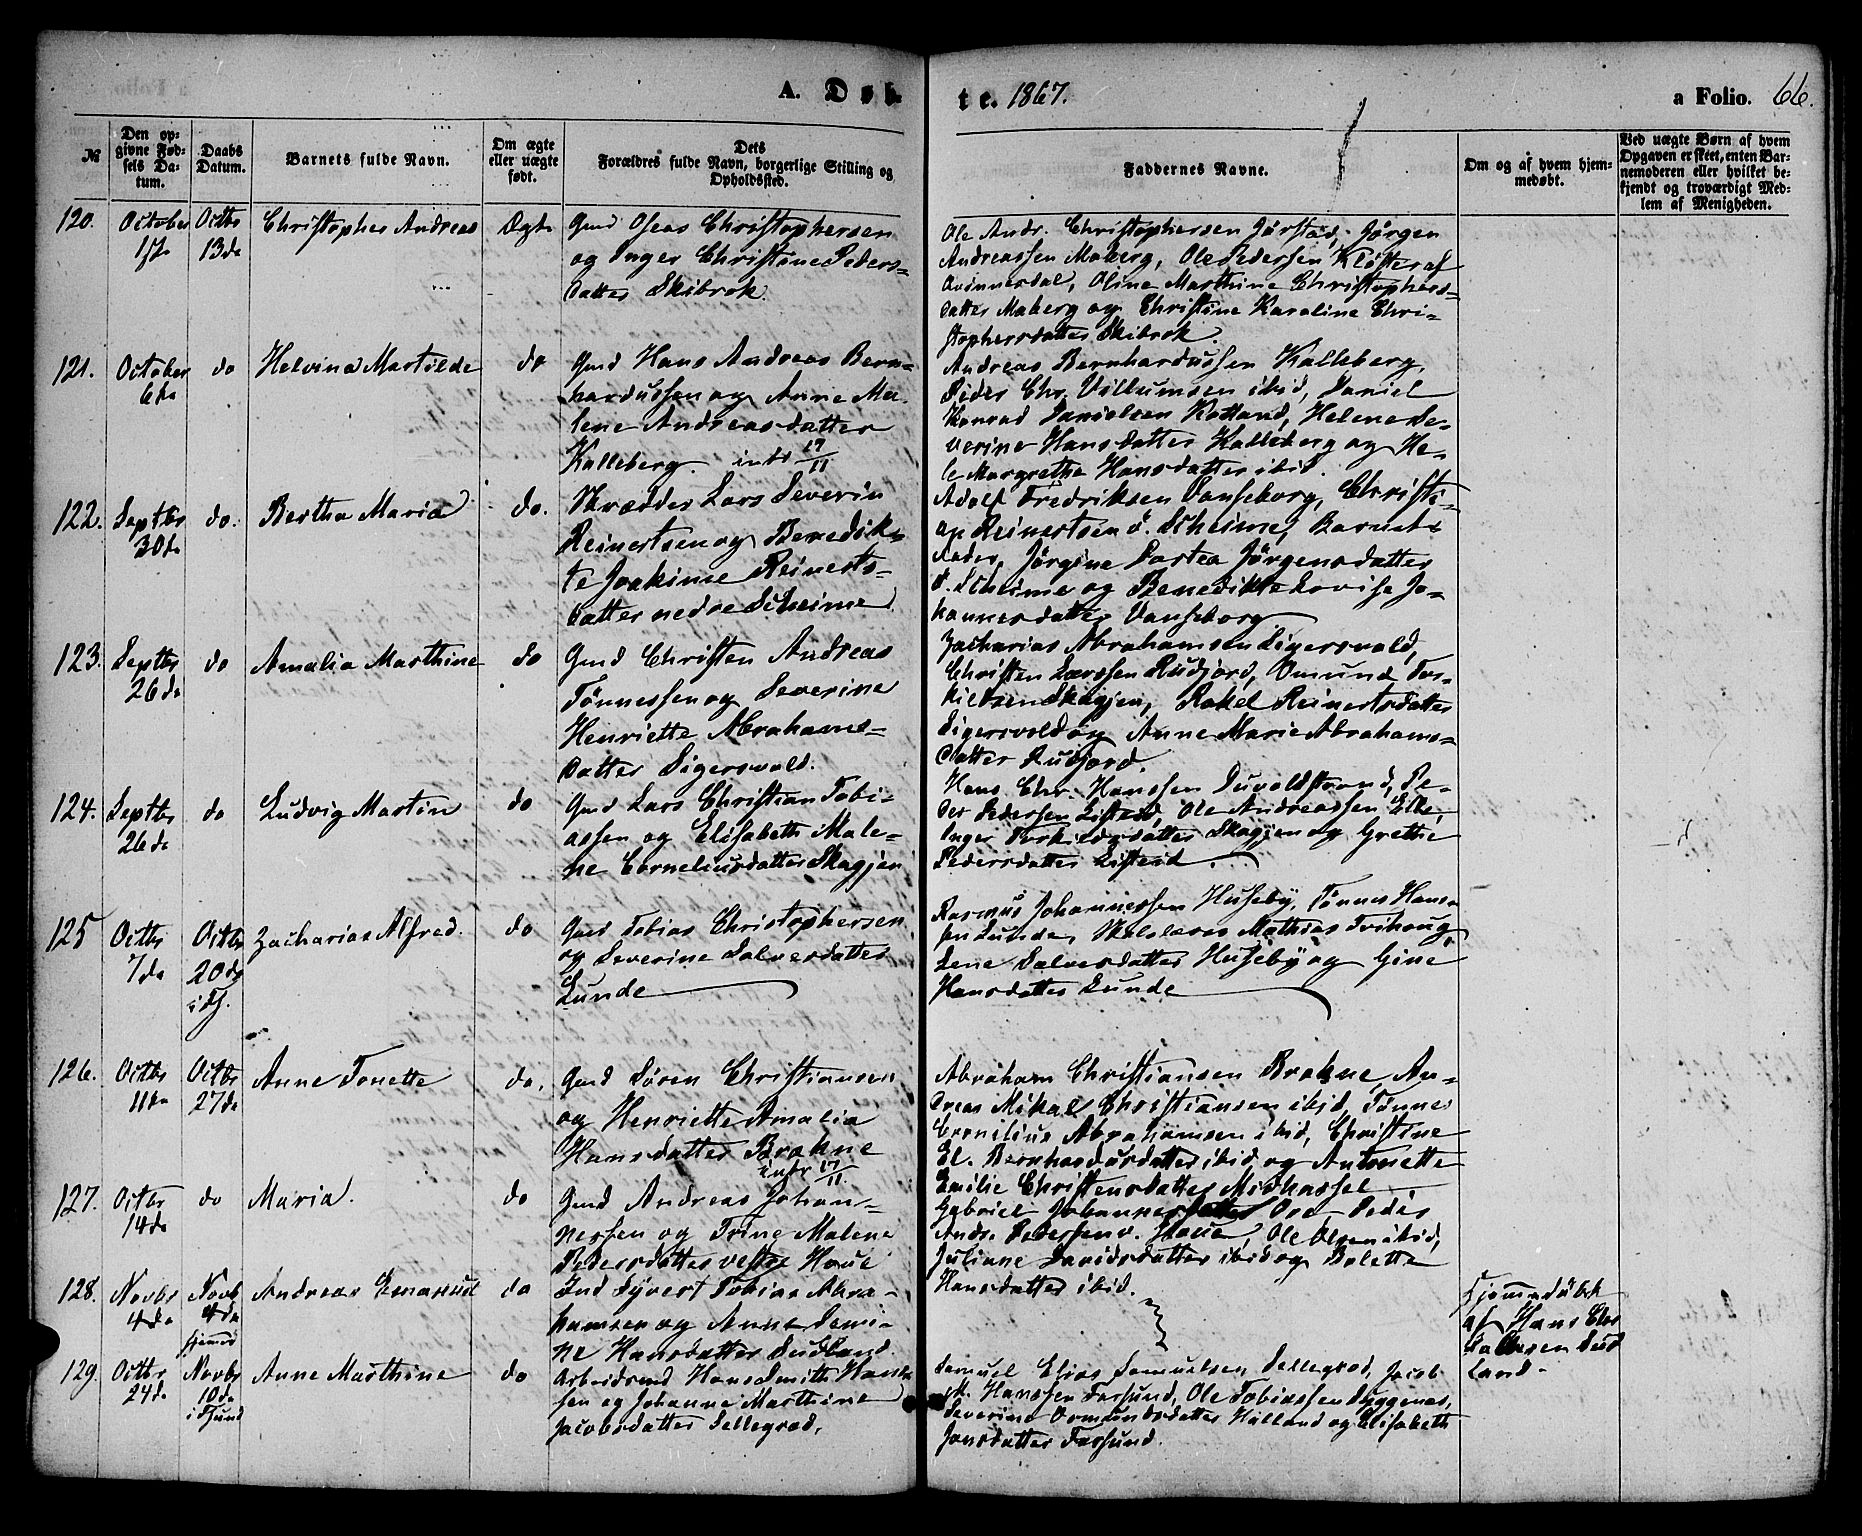 A. Døb-
te. 1867.
a Folio. 66.
№
Den op-
givne Fød-
sels Da-
tum.
Daabs
Datum.
Barnets fulde Navn.
Om ægte
eller uægte
født.
Dets
Forældres fulde Navn, borgerlige Stilling og
Opholdssted.
Faddernes Navne.
Om og af hvem hjem-
medøbt.
Ved uægte Børn af hvem
Opgaven er skéet, enten Bar-
nemoderen eller hvilket be-
kjendt og troværdigt Med-
lem af Menigheden.
120.
October
1ste
Octbr
13de
Christopher Andreas
Ægte
Gmd Oseas Christophersen
og Inger Christine Peders-
datter Skibrok.
Ole Andr. Christophersen Jørstad, Jørgen
Andreassen Maberg, Ole Pedersen Kløfter af
Qvinnesdal, Oline Marthine Christophers-
datter Maberg og Christine Karoline Chri-
stophersdatter Skibrok.
121.
October
6te
do
Helvina Martilde
do
Gmd Hans Andreas Bern-
hardussen og Anne Ma-
lene Andreasdatter
Kalleberg. intr 17/11
Andreas Bernhardussen Kalleberg,
Peder Chr. Villumsen ibid, Daniel
Konrad Danielsen Kolland, Helene Se-
verine Hansdatter Kalleberg og He-
le Margrethe Hansdatter ibid.
122.
Septbr
30de
do.
Bertha Maria
do.
Skrædder Lars Severin
Reinertsen og Benedik-
te Joakime Reinerts-
datter nedre Scheime
Adolf Fredriksen Vanseborg, Christi-
an Reinertsen ø. Scheime, Barnets
Fader, Jørgine Dortea Jørgensdatter
ø. Scheime og Benedikte Lovise Jo-
hannesdatter Vanseborg
123.
Septbr
26de
do
Amalia Marthine
do
Gmd Christen Andreas
Tønnessen og Severine
Henriette Abrahams-
datter Sigersvold.
Zacharias Abrahamsen Sigersvold,
Christen Larssen Rudjord, Omund Tor-
kildsen Skagjen, Rakel Reinertsdatter
Sigersvold og Anne Marie Abrahams-
datter Rudjord.
124.
Septbr
26de
do
Ludvig Martin
do
Gmd Lars Christian Tobi-
assen og Elisabeth Male-
ne Corneliusdatter Skagjen
Hans Chr. Hanssen Duvoldstrand, Pe-
der Pedersen Listeid, Ole Andreassen Eike,
Inger Torkildsdatter Skagjen og Grethe
Pedersdatter Listeid.
125
Octbr
7de
Octbr
20de
i Fj.
Zacharias Alfred.
do
Gmd Tobias Christophersen
og Severine Salvesdatter
Lunde
Rasmus Johannessen Huseby, Tønnes Hans-
sen Lunde, Skolelærer Mathias Tvihoug
Lene Salvesdatter Huseby og Gine
Hansdatter Lunde
126.
Octbr
11te
Octbr
27de
Anne Tonette
do.
Gmd Søren Christiansen
og Henriette Amalia
Hansdatter Brekne
intr 17/11.
Abraham Christiansen Brekne, An-
dreas Mikal Christiansen ibid, Tønnes
Cornelius Abrahamsen ibid, Christine
El. Bernhardusdatter ibid og Antonette
Emilie Christensdatter Midhassel
127.
Octbr
14de
do
Maria.
do
Gmd Andreas Johan-
nessen og Trine Malene
Pedersdatter vestre Houe
Gabriel Johannessen Ore, Peder
Andr. Pedersen v. Houe, Ole Olsen ibid,
Juliane Davidsdatter ibid og Bolette
Hansdatter ibid.
128.
Novbr
4de
Novb
4de
hjemme
Andreas Emanuel
do
Ind Syvert Tobias Abra-
hamsen og Anne Semi-
ne Hansdatter Sudland
Hjemmedøbt
af Hans Elos
Sudland.
129.
Octbr
24de
Novbr
10de
i Fsund
Anne Marthine
do
Arbeidsmd Hans Smith Hans-
sen og Johanne Marthine
Jacobsdatter Sellegrød.
Samuel Elias Samuelsen Sellegrød, Jacob
M. Hanssen Farsund, Ole Tobiassen Dyggenes,
Severine Osmundsdatter Hølland og Elisabeth
Jonsdatter Farsund.